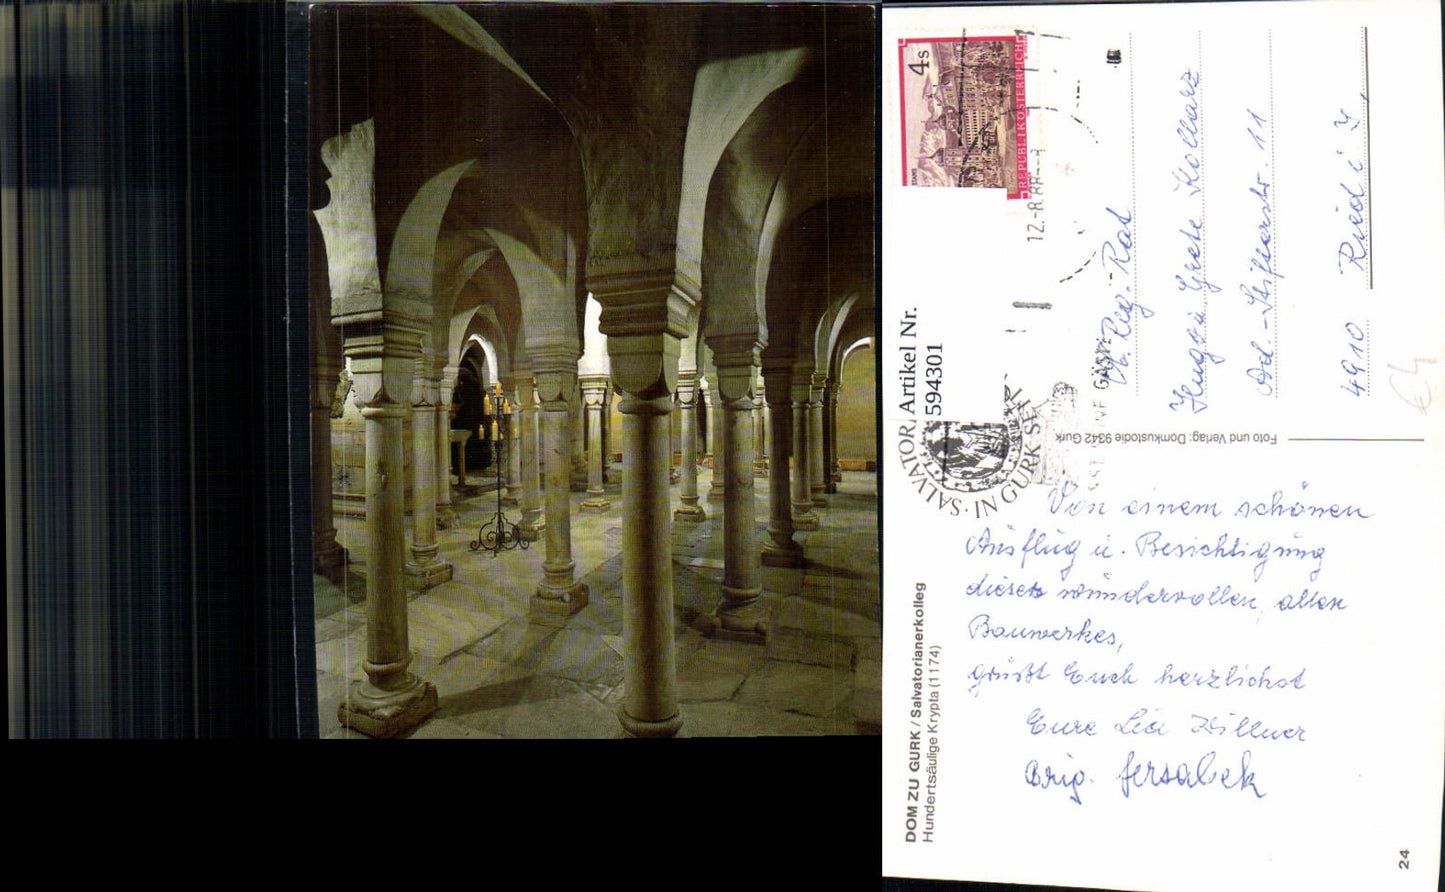 4 S
STAMS
REPUBLIK ÖSTERREICH
12.-8.88
SALVATOR
IN GURK SEIT
Artikel Nr.
594301
Foto und Verlag: Domkustodie 9342 Gurk
Hugo u Grete Kollarz
Adal.-Stifterstr. 11
4910 Ried i I,
€4
Von einem schönen
Ausflug u. Besichtigung
dieses wundervollen, alten
Bauwerkes,
grüßt Euch herzlichst
Eure Lia Zillner
Brig.
DOM ZU GURK / Salvatorianerkolleg
Hundertsäulige Krypta (1174)
24